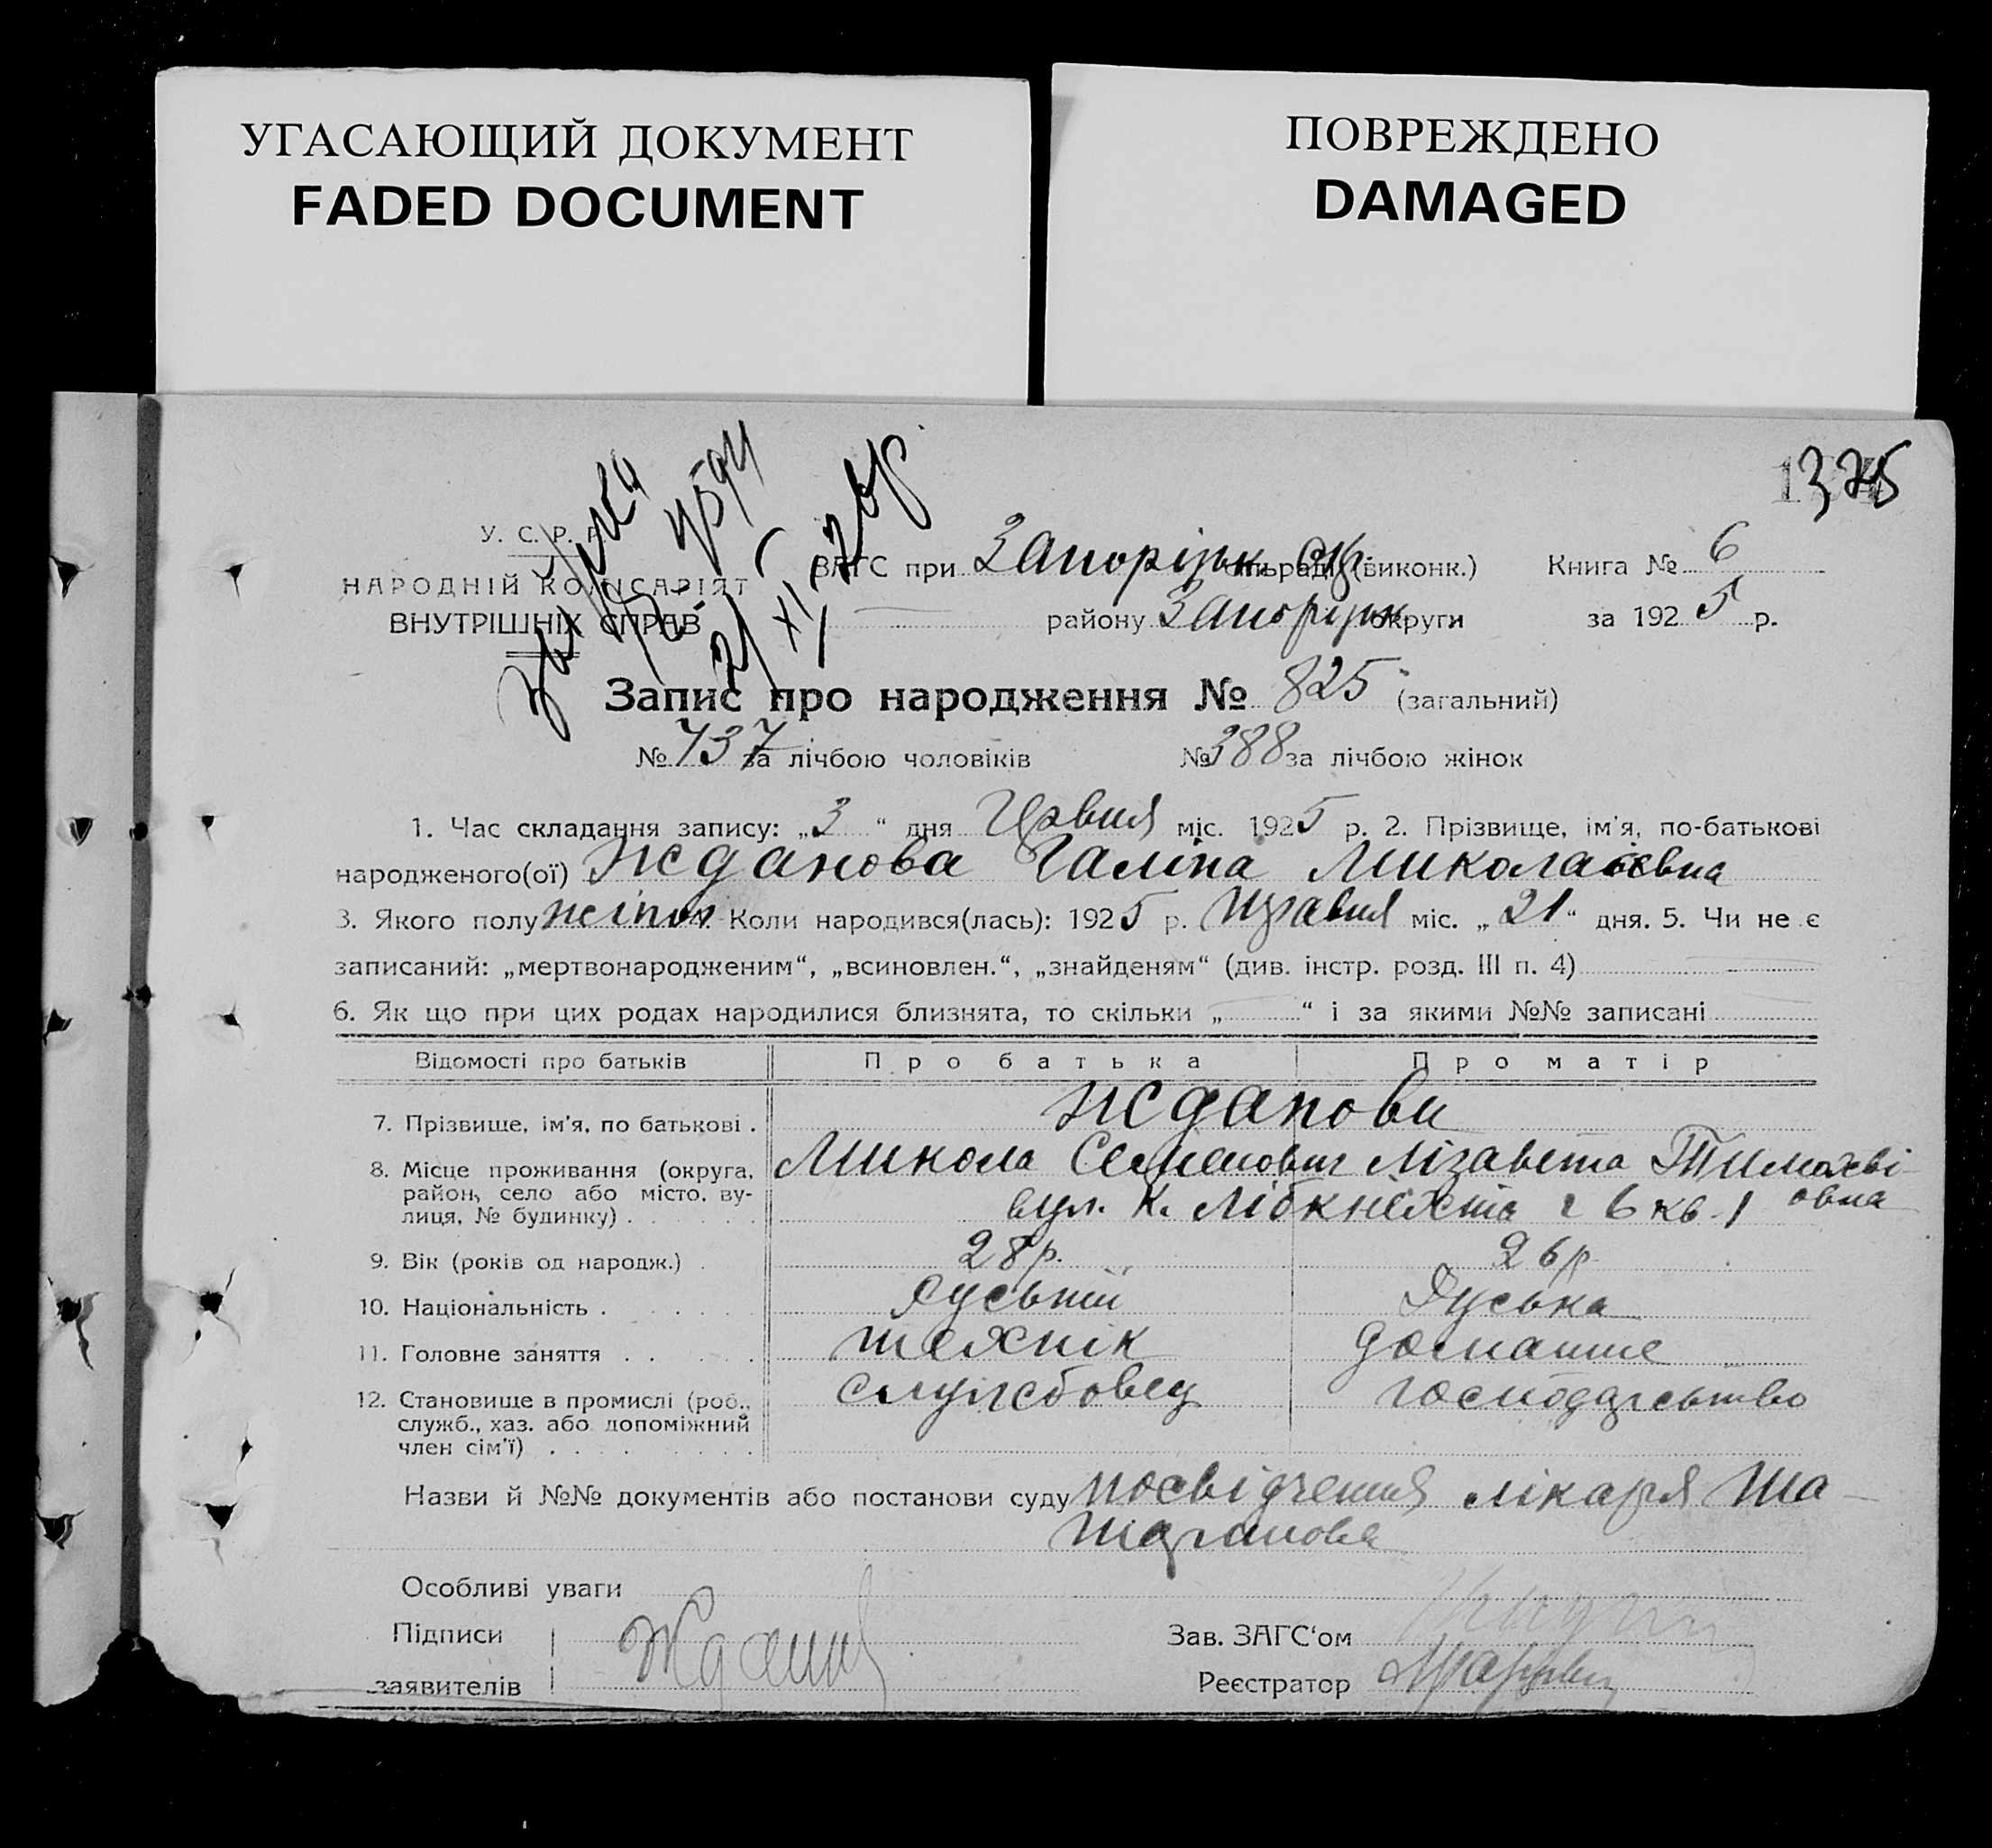 УГАСАЮЩИЙ ДОКУМЕНТ
FADED DOCUMENT
ПОВРЕЖДЕНО
DAMAGED
У. С. Р. Р.
НАРОДНІЙ КОМІСАРІЯТ
ВНУТРІШНІХ СПРАВ
ЗАГС при Запорізьк. Окр. (виконк.) Книга № 6
району Запорізьк округи за 1925 р.
Запис про народження № 825 (загальний)
№ 437 за лічбою чоловіків № 388 за лічбою жінок
1. Час складання запису: „3“ дня Червня міс. 1925 р. 2. Прізвище, ім'я, по-батькові
народженого(ої) Жданова Галіна Миколаєвна
3. Якого полу жіноч 4. Коли народився(лась): 1925 р. Травня міс. „21“ дня. 5. Чи не є
записаний: „мертвонародженим“, „всиновлен.“, „знайденям“ (див. інстр. розд. III п. 4)
6. Як що при цих родах народилися близнята, то скільки „ “ і за якими №№ записані
Відомості про батьків Про батька Про матір
7. Прізвище, ім'я, по батькові . Жданови
8. Місце проживання (округа, Микола Семенович Лізавета Тимохві-
район, село або місто, ву- вул. К. Лібкнехта 6 кв. 1 овна
лиця, № будинку)
9. Вік (років од народж.) . 28 р. 26 р.
10. Національність . Руський Руська
11. Головне заняття . технік домашнє
12. Становище в промислі (роб., службовец господарство
служб., хаз. або допоміжний
член сім'ї)
Назви й №№ документів або постанови суду посвідчення лікаря Ша-
Особливі уваги
Підписи Зав. ЗАГС'ом
заявителів Жданов Реєстратор